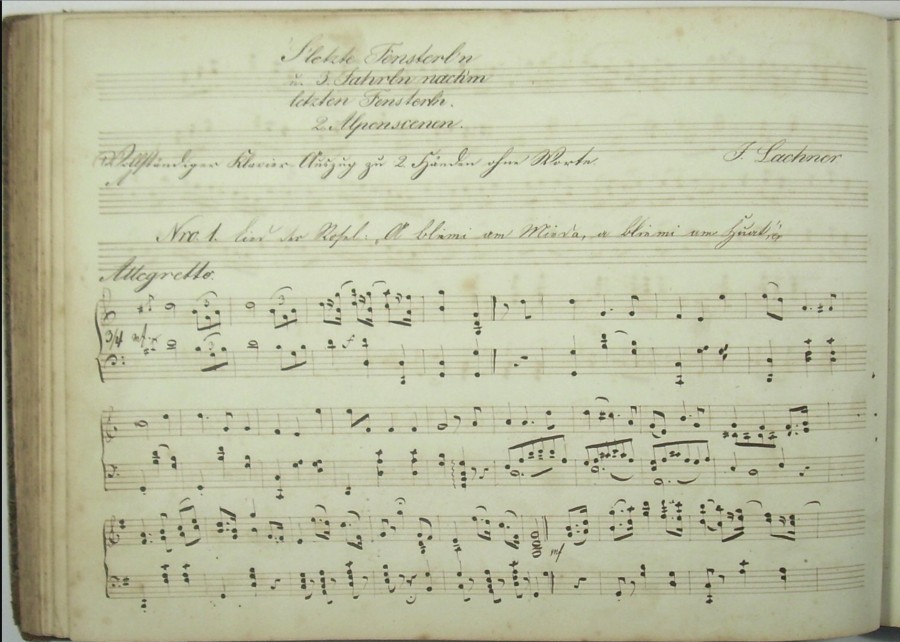 S'letzte Fensterln
u. 3. Jahrln nach'm
letzten Fensterln.
2 Alpenscenen.
Vollständiger Klavier Auszug zu 2 Händen ohne Worte. J. Lachner
Nro. 1. Lied der Rosel: „A bliemi am Mieda, a bliemi am Huat,"
Allegretto.
3/4 mf
mf